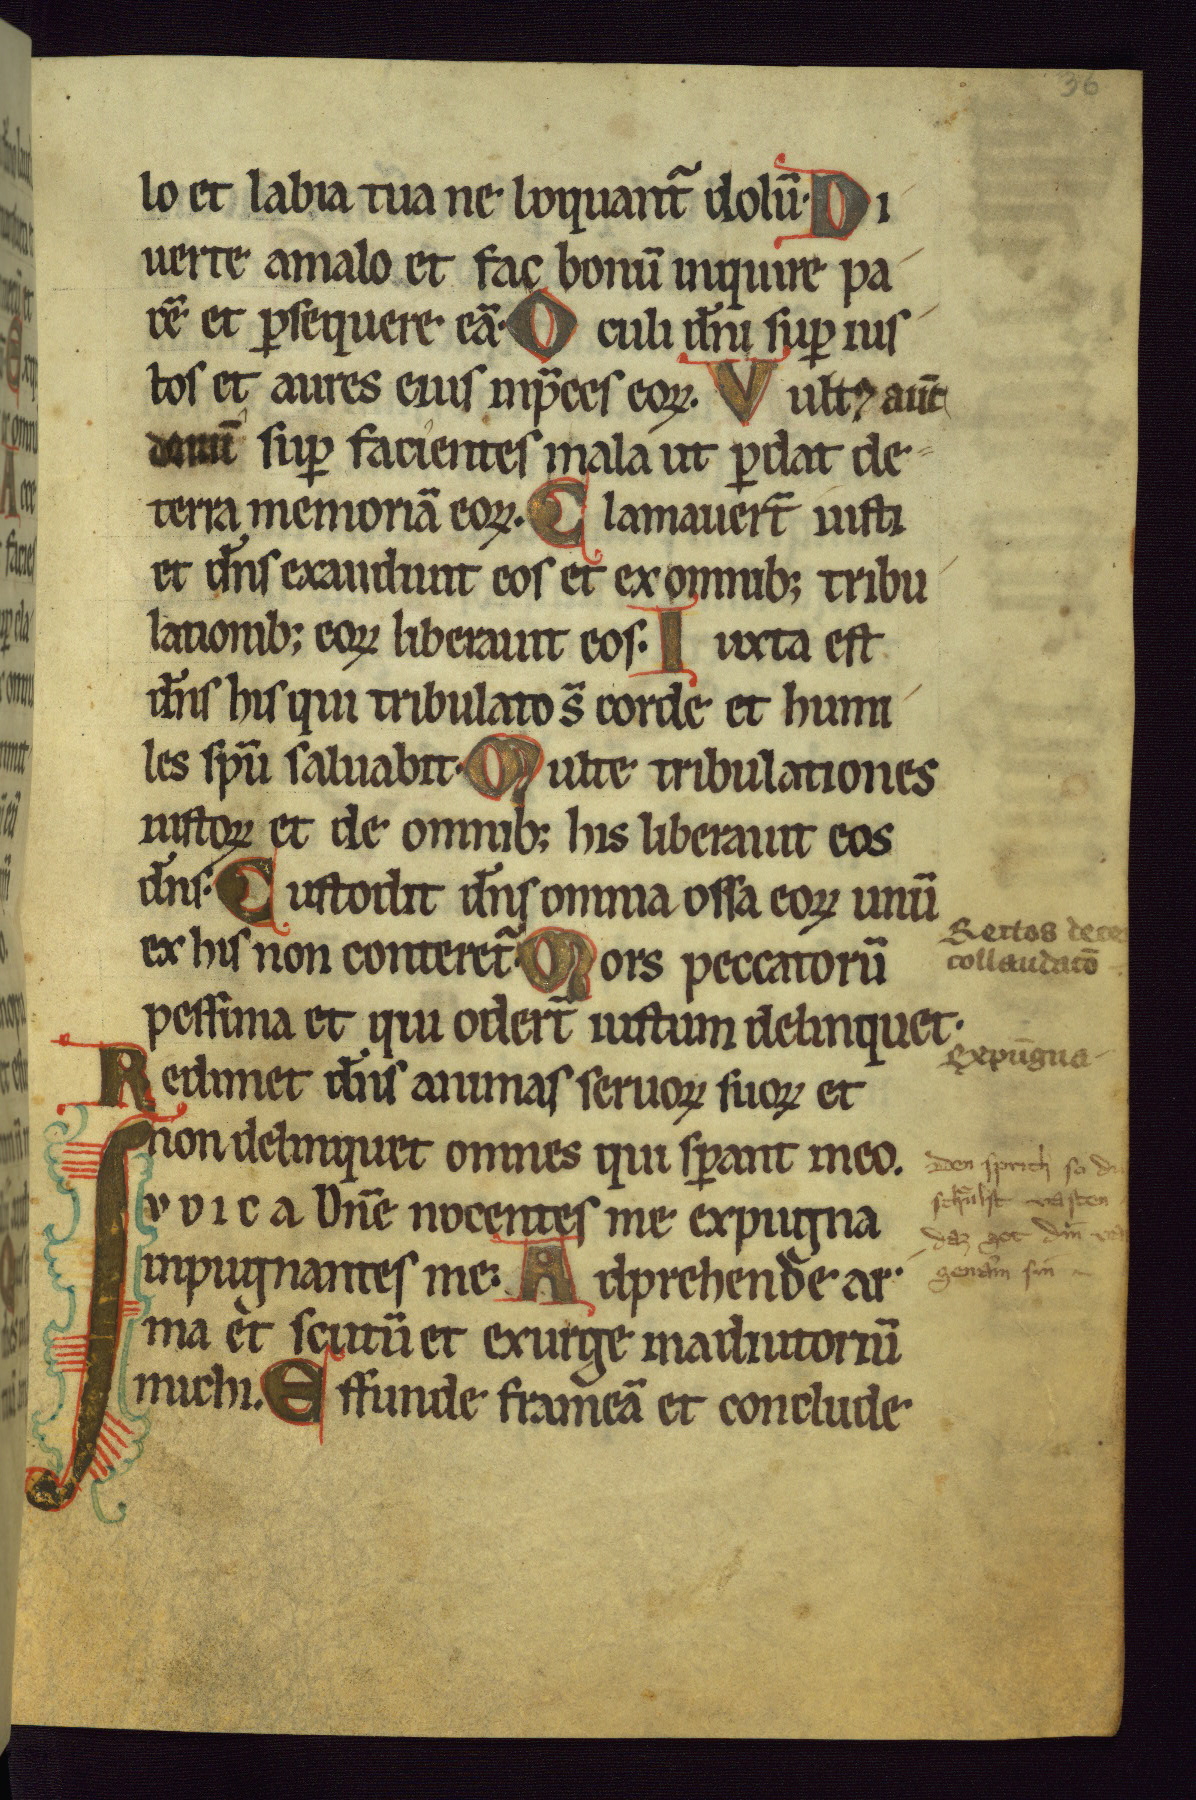 36
lo et labia tua ne loquant᷑ dolū. Di
uerte amalo et fac bonū inquire pa
cē et ꝑsequere eā. Oculi dn̄i suꝑ ius
tos et aures eius inp̄ces eoꝝ. Vultꝰ aūt
dn̄i suꝑ facientes mala ut ꝑdat de
terra memoriā eoꝝ. Clamauerт̄ iusti
et dn̄s exaudiuit eos et ex omnib; tribu
lationib; eoꝝ liberauit eos. Iuxta est
dn̄s his qui tribulato s̄ corde et humi
les spū saluabit. Multe tribulationes
iustoꝝ et de omnib; his liberauit eos
dn̄s. Custodit dn̄s omnia ossa eoꝝ unū
ex his non conteret᷑. Mors peccatorū
pessima et qui odert̄ iustum delinquet.
Redimet dn̄s animas seruoꝝ suoꝝ et
non delinquet omnes qui sꝑant ineo.
Iudica dn̄e nocentes me expugna
inpugnantes me. Adprehende ar
ma et scutū et exurge inadiutoriū
michi. Effunde frameā et conclude
Rectos dece
collaudatō
Expūgna
den sprich so du
vasten
daz got din
sin